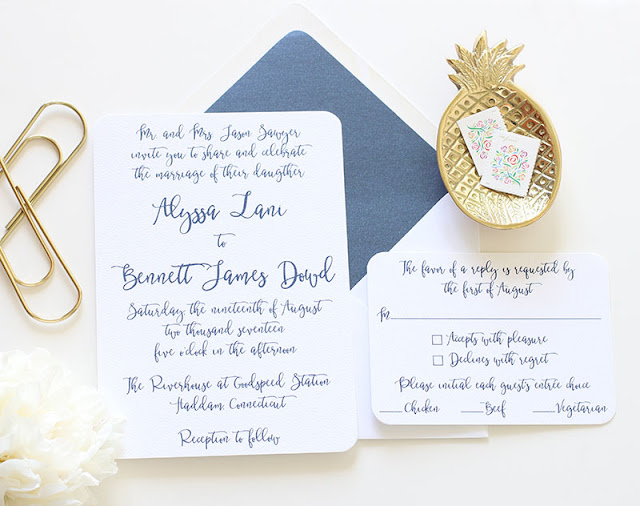 Mr. and Mrs. Jason Sawyer
invite you to share and celebrate
the marriage of their daugther
Alyssa Lani
to
Bennett James Dowd
Saturday the nineteenth of August
two thousand seventeen
five o'clock in the afternoon
The Riverhouse at Godspeed Station
Haddam, Connecticut
Reception to follow
The favor of a reply is requested by
the first of August
M
Accepts with pleasure
Declines with regret
Please initial each guests entrée choice
Chicken Beef Vegetarian